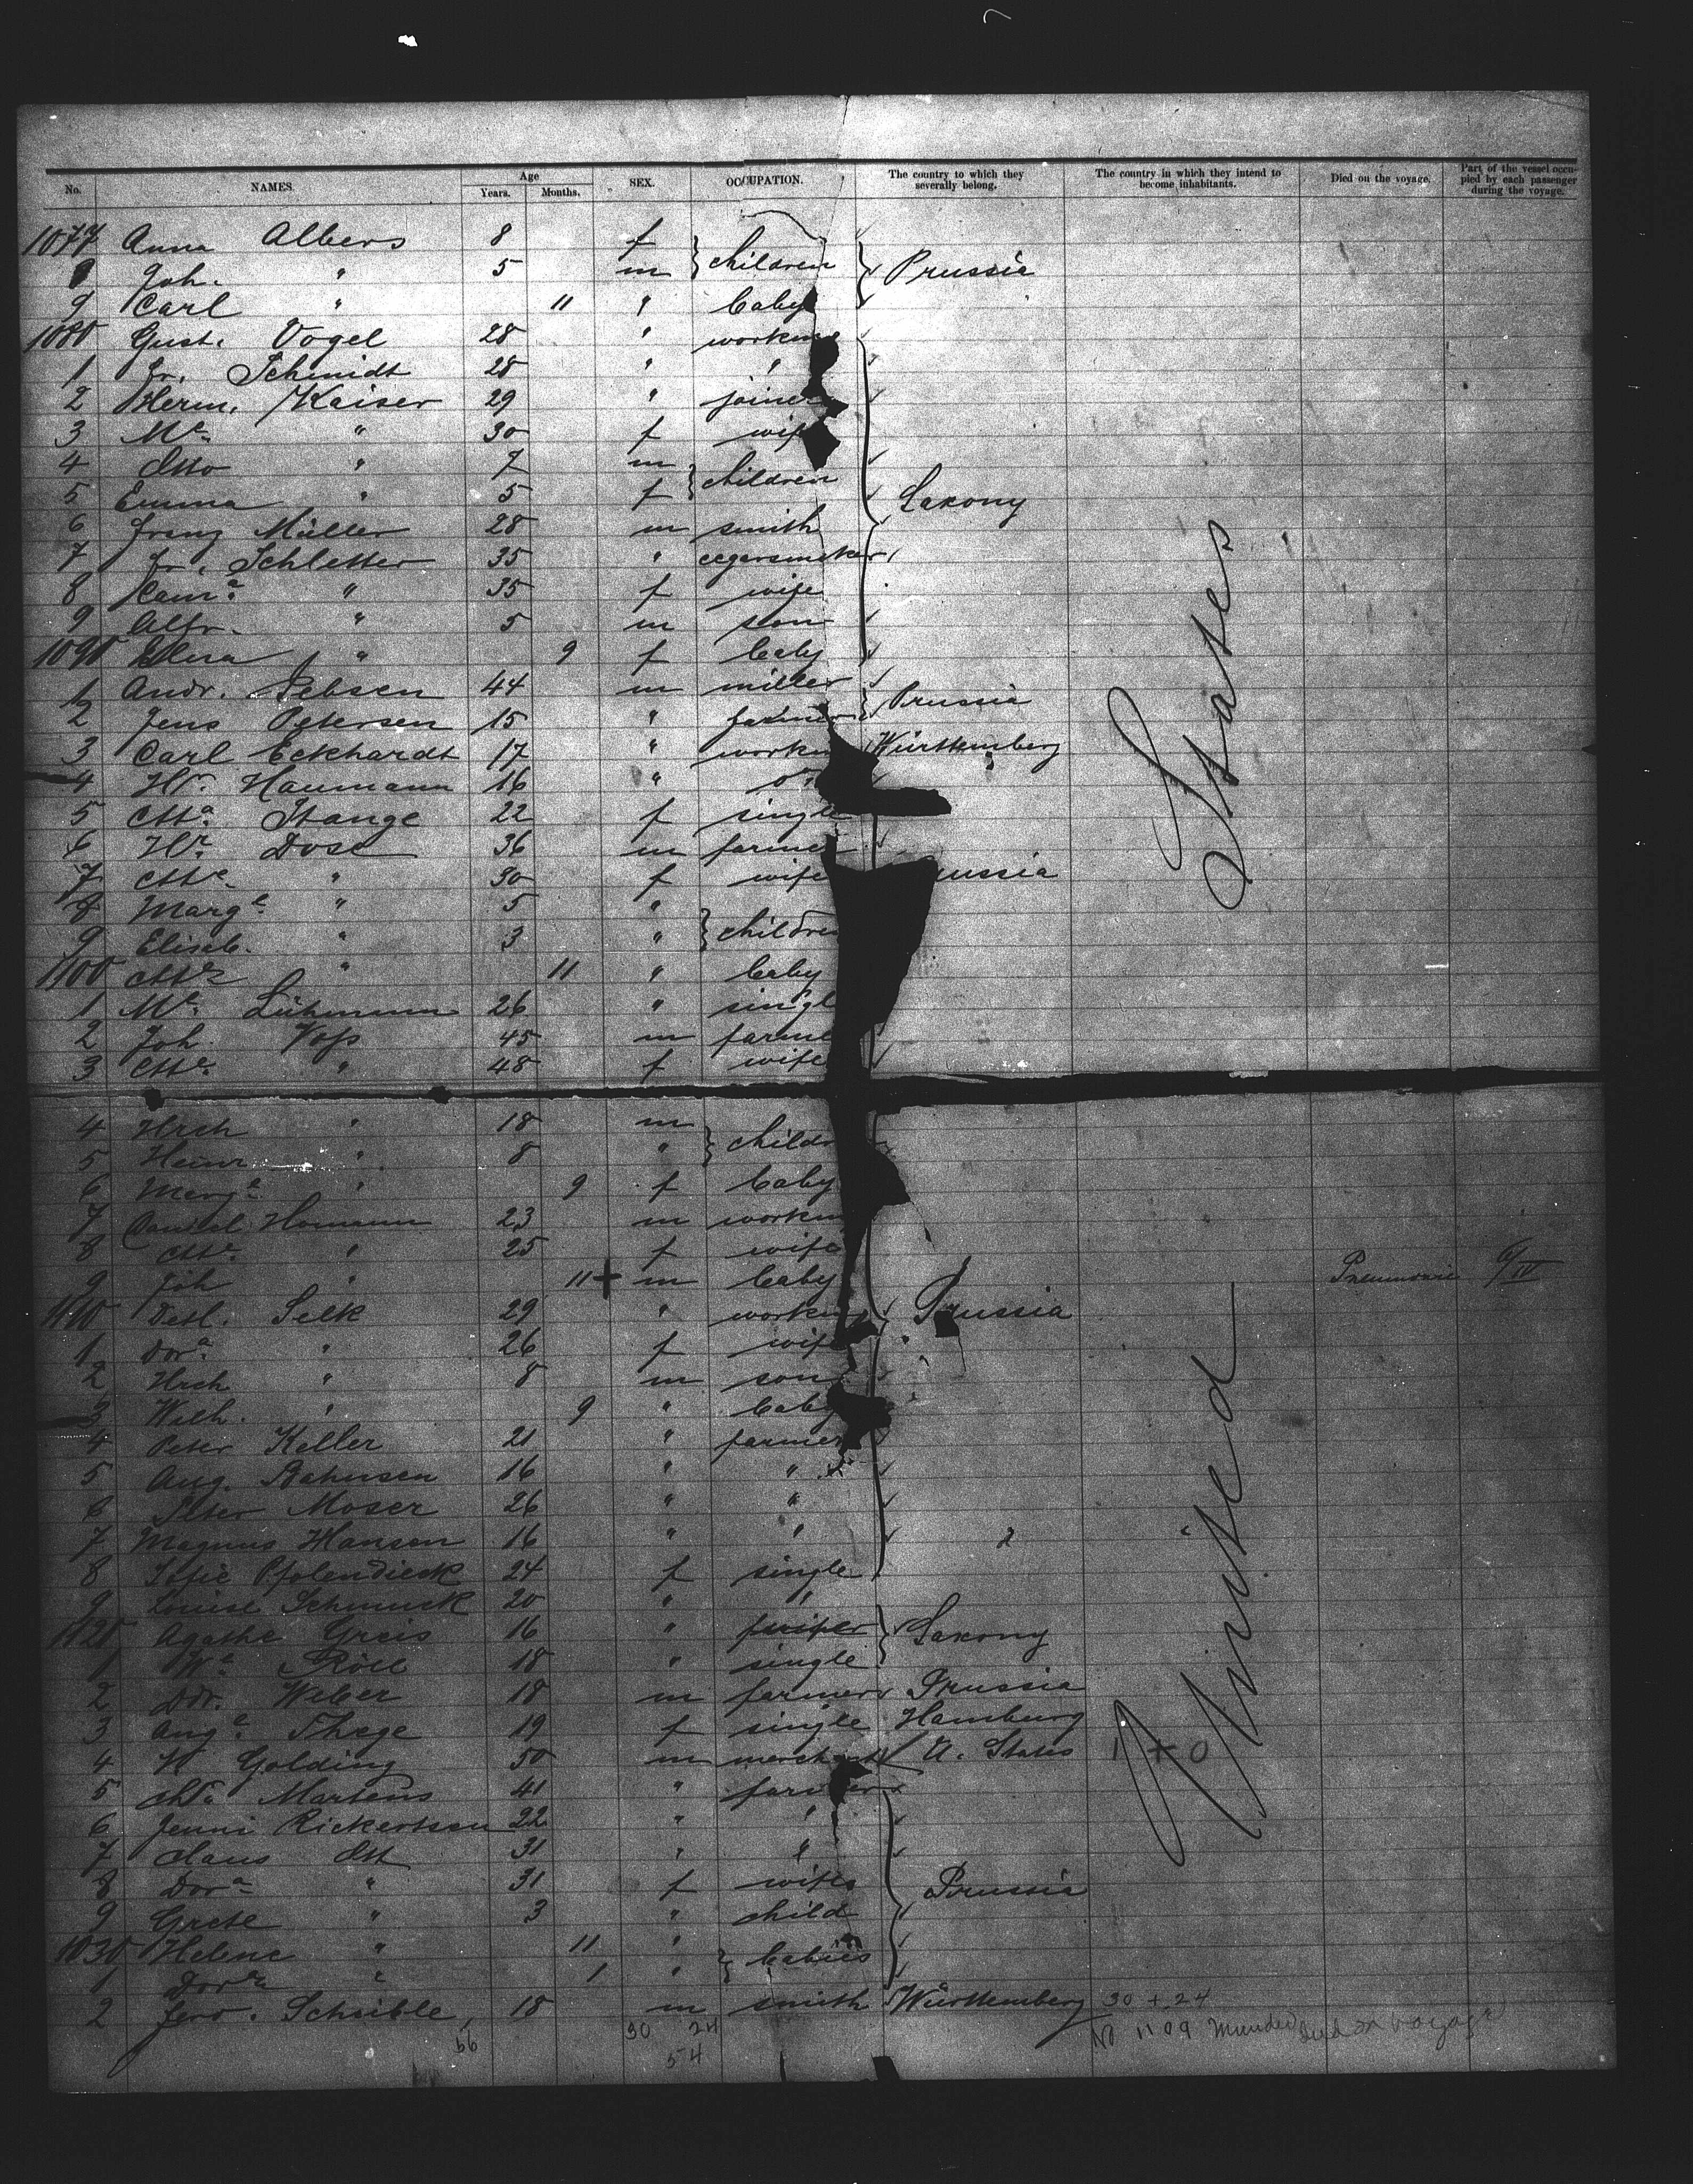 No. NAMES. Age Years. Months. SEX. OCCUPATION. The country to which they severally belong. The country in which they intend to become inhabitants. Died on the voyage. Part of the vessel occupied by each passenger during the voyage.
1077 Anna Albers 8 f children Prussia
8 Joh. " 5 m
9 Carl " 11 " baby
1080 Gust. Vogel 28 " workm
1 Fr. Schmidt 28 " "
2 Herm. Kaiser 29 " joiner
3 Me. " 30 f wife
4 Otto " 7 m children
5 Emma " 5 f Saxony
6 Franz Müller 28 m smith
7 Fr. Schletter 35 " cegarsmeker
8 " 35 f wife
9 Alfr. " 5 m son
1090 " 9 f baby
1 Andr. Jebsen 44 m miller Prussia
2 Jens Petersen 15 " farmer
3 Carl Eckhardt 17 " workm Württemberg
4 Hr. Haumann 16 "
5 Stange 22 f single
6 Hr. Dose 36 m farmer
7 " 30 f wife ussia
8 Marge. " 5 " children
9 Elisab. " 3 "
1100 " 11 " baby
1 Me. Lühmann 26 " singl
2 Joh. Voss 45 m farme
3 " 48 f wife
4 Hrch " 18 m childr
5 Heinr. " 8 "
6 Marga. " 9 f baby
7 Daniel Homann 23 m workm
8 " 25 f wife
9 Joh " 11 + m baby Pneumonie 6/IV
1110 Detl. Selk 29 " workm Prussia
1 Dora. " 26 f wife
2 Hrch " 8 m son
3 Wilh. " 9 " baby
4 Peter Keller 21 " farmer
5 Aug. Bahnsen 16 " "
6 Peter Moser 26 " "
7 Magnus Hansen 16 " "
8 Sofie Pfolendieck 24 f single
9 Louise Schmuck 20 " "
1120 Agathe Greis 16 " Saxony
1 Röll 18 " single
2 Weber 18 m farmer Prussia
3 Auga. Thege 19 f single Hamburg
4 H Golding 50 m merchant U. States 1 + 0
5 Martens 41 " farmer
6 Jenni Rickertsen 22 " "
7 Claus Ott 31 " "
8 Dora " 31 f wife Prussia
9 Grete " 3 " child
1030 Helene " 11 " babies
1 Dora " 1 "
2 Ferd. Schaible 18 m smith Württemberg 30 + 24
56 30 24 No 1109 died on voyage
54
United States